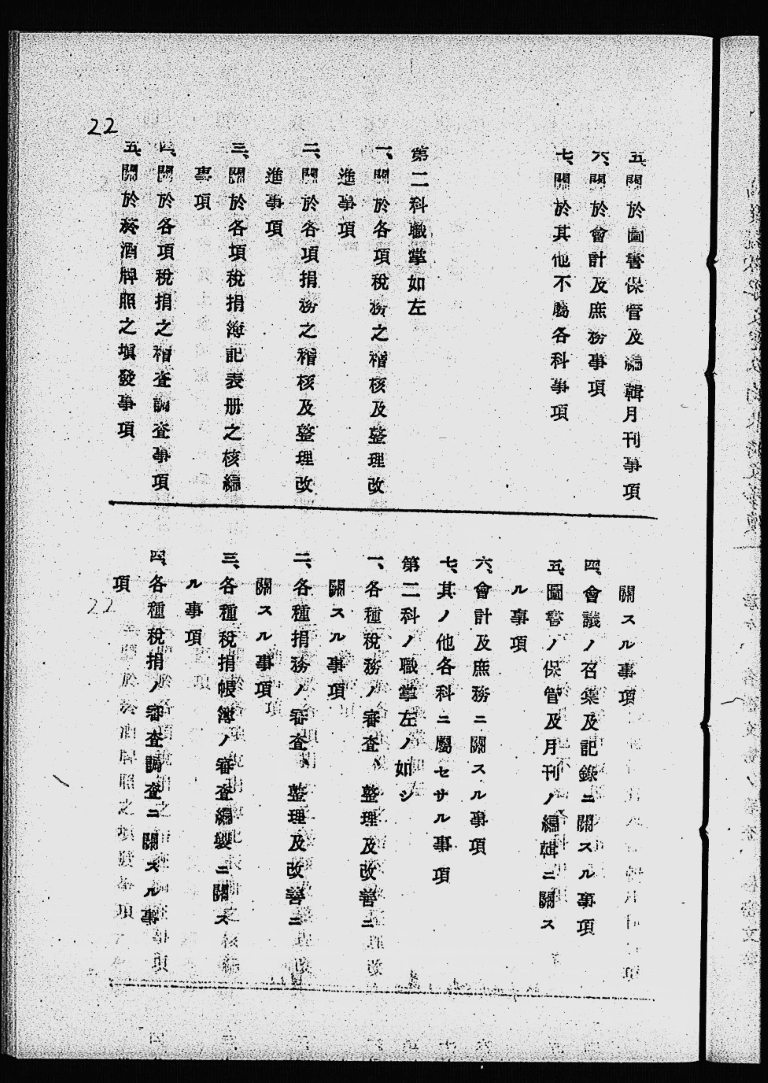 22
五、關於圖書保管及編輯月刊事項
六、關於會計及庶務事項
七、關於其他不屬各科事項
第二科職掌如左
一、關於各項稅務之稽核及整理改
進事項
二、關於各項捐務之稽核及整理改
進事項
三、關於各項稅捐簿記表册之核編
事項
四、關於各項稅捐之稽查調查事項
五、關於菸酒牌照之填發事項
關スル事項
四、會議ノ召集及記錄ニ關スル事項
五、圖書ノ保管及月刊ノ編輯ニ關ス
ル事項
六、會計及庶務ニ關スル事項
七、其ノ他各科ニ屬セサル事項
第二科ノ職掌左ノ如シ
一、各種稅務ノ審査、整理及改善ニ
關スル事項
二、各種捐務ノ審査、整理及改善ニ
關スル事項
三、各種稅捐帳簿ノ審査編製ニ關ス
ル事項
四、各種稅捐ノ審査調査ニ關スル事
項
22